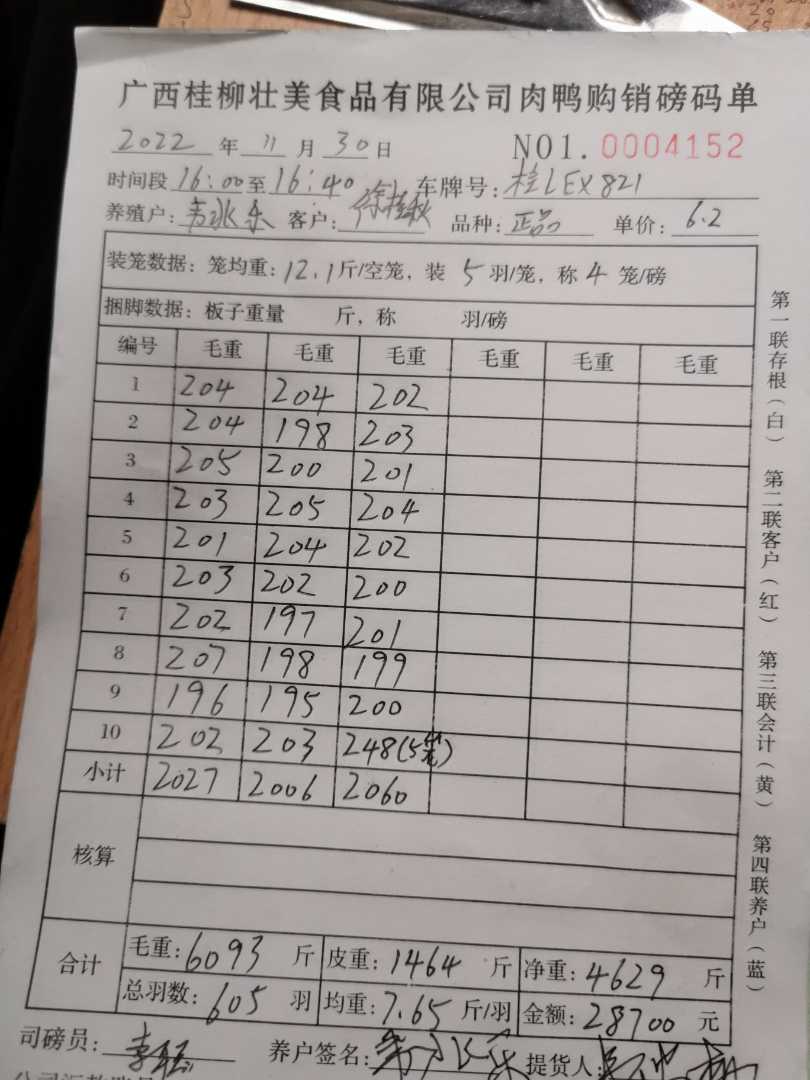 广西桂柳壮美食品有限公司肉鸭购销磅码单
2022 年 11 月 30 日 NO1. 0004152
时间段 16:00 至 16:40 车牌号: 桂LEX821
养殖户: 韦冰乐 客户: 徐桂秋 品种: 正品 单价: 6.2
装笼数据: 笼均重: 12.1 斤/空笼, 装 5 羽/笼, 称 4 笼/磅
捆脚数据: 板子重量 斤, 称 羽/磅
编号 毛重 毛重 毛重 毛重 毛重 毛重
1 204 204 202
2 204 198 203
3 205 200 201
4 203 205 204
5 201 204 202
6 203 202 200
7 202 197 201
8 207 198 199
9 196 195 200
10 202 203 248(5笼)
小计 2027 2006 2060
核算
合计 毛重: 6093 斤 皮重: 1464 斤 净重: 4629 斤
总羽数: 605 羽 均重: 7.65 斤/羽 金额: 28700 元
司磅员: 养户签名: 提货人:
第一联存根(白) 第二联客户(红) 第三联会计(黄) 第四联养户(蓝)